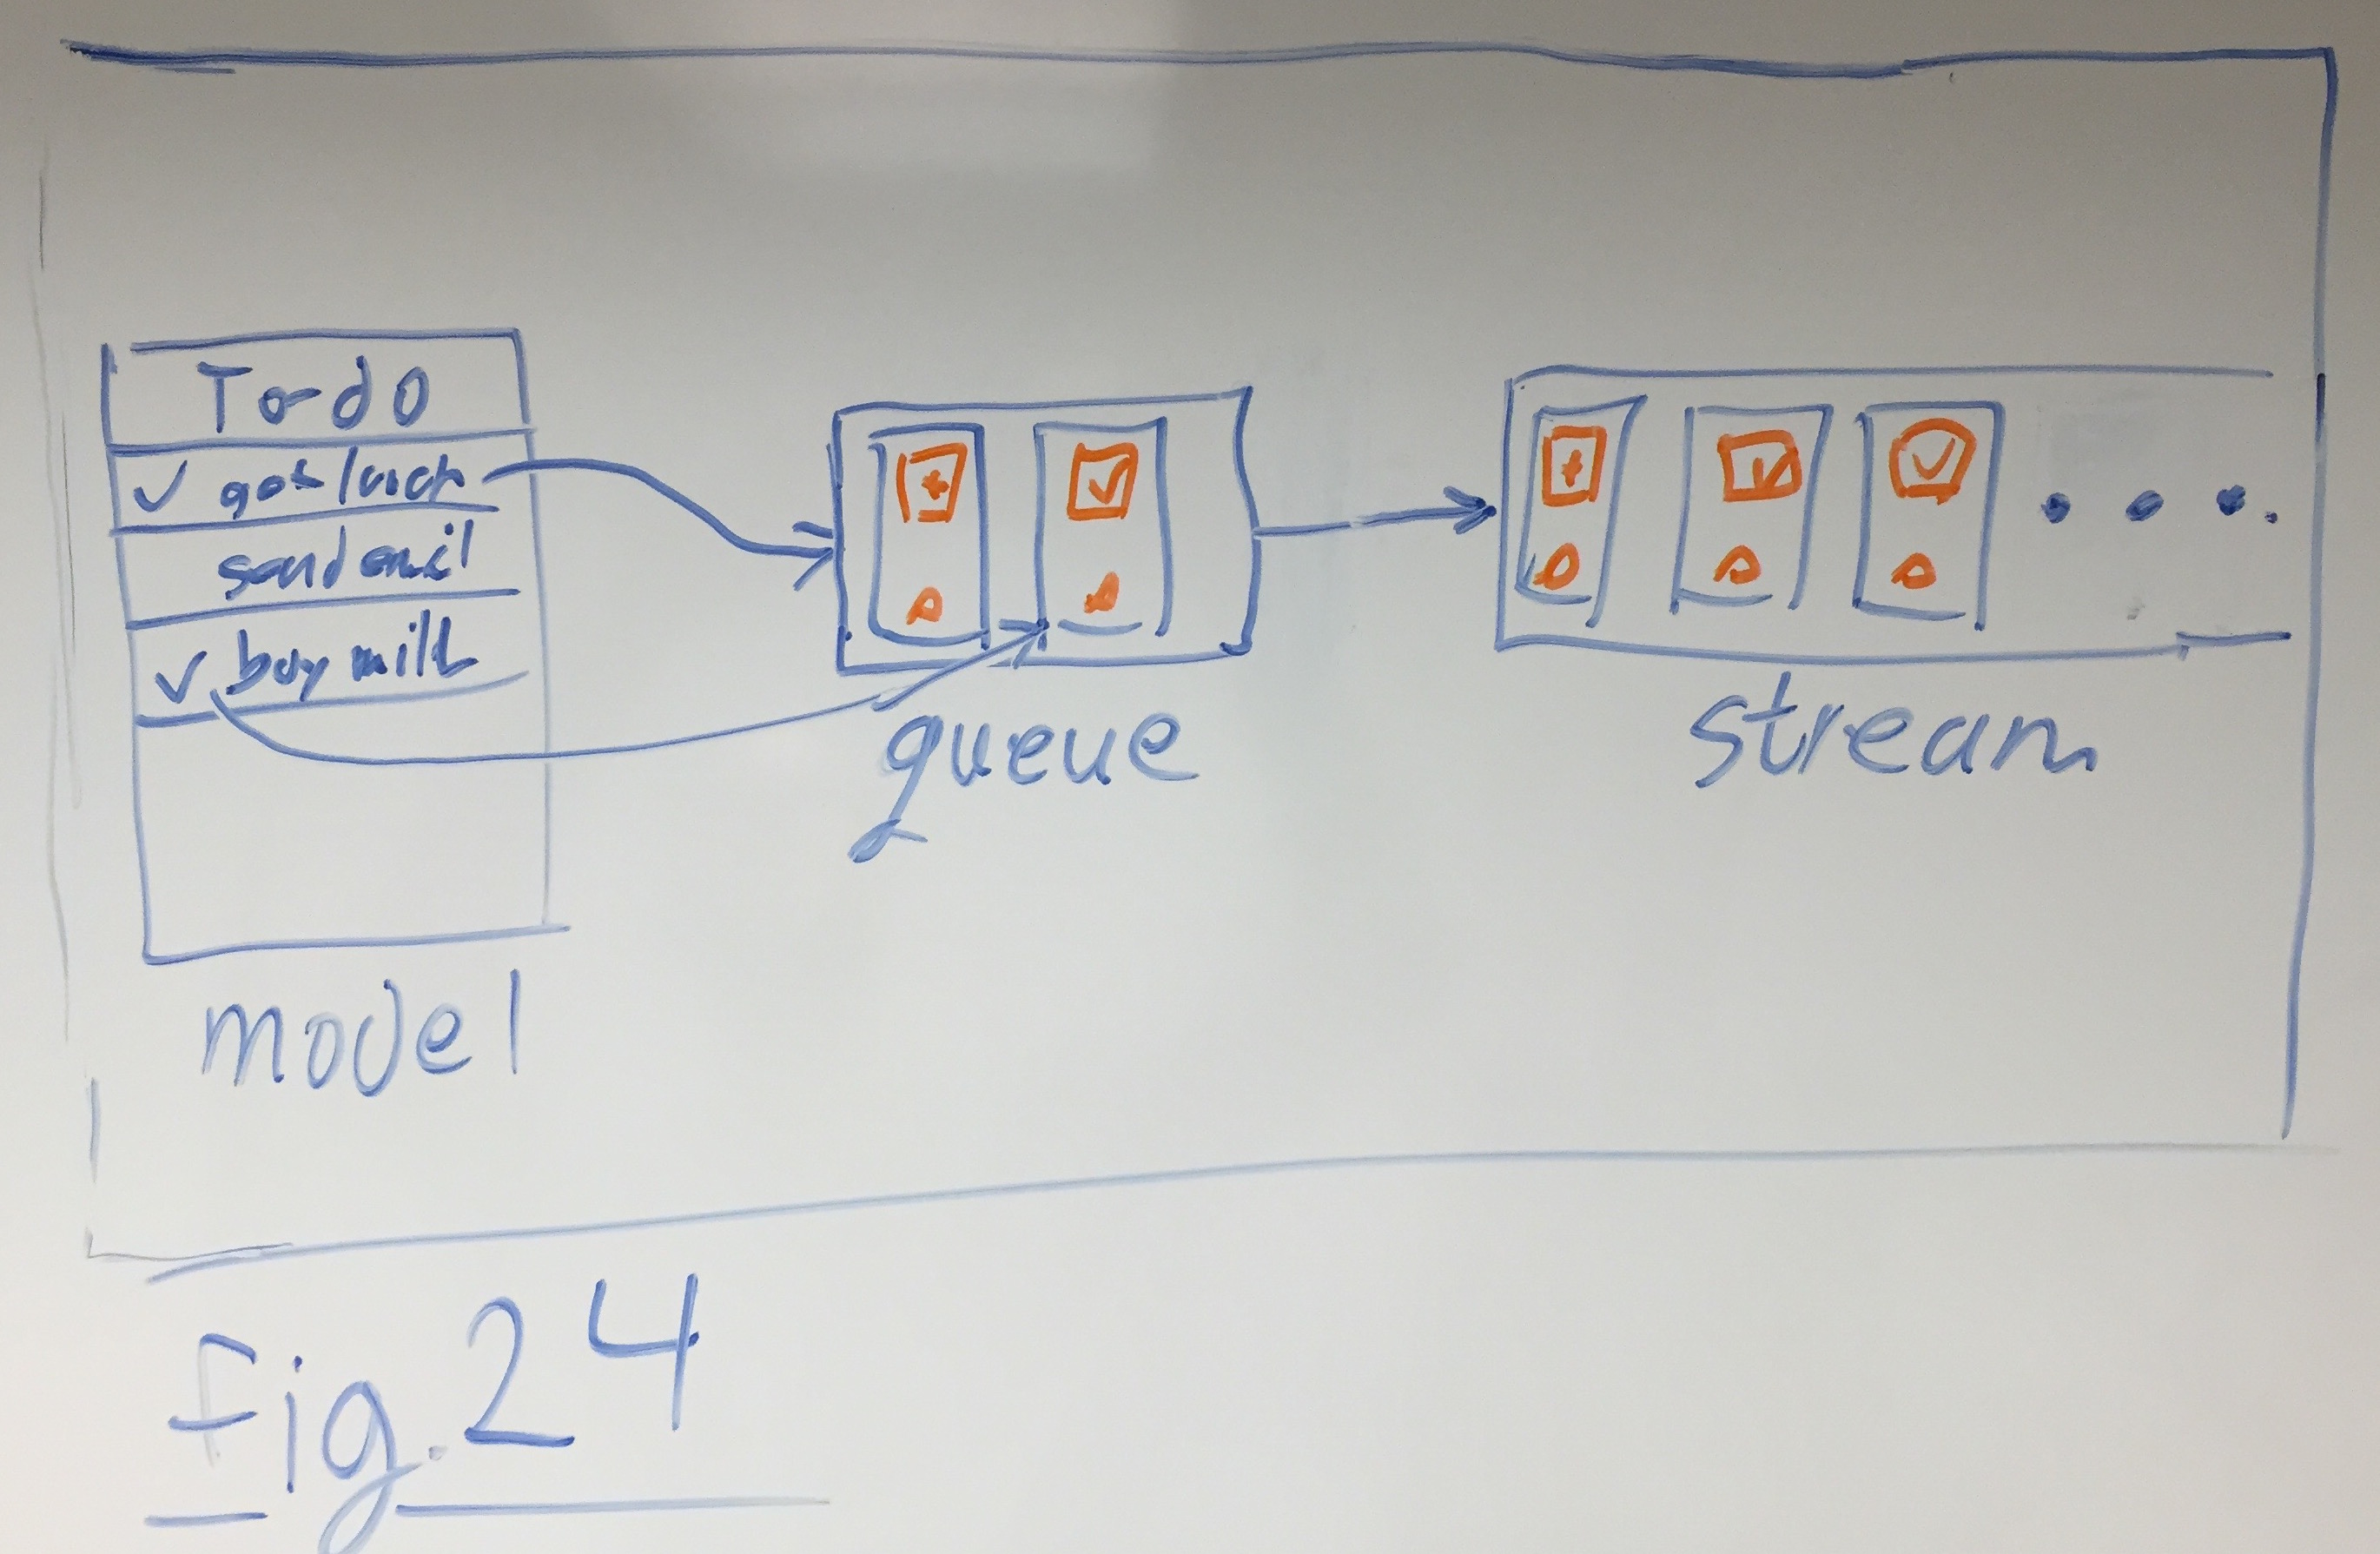 Todo
✓ get lunch
send email
✓ buy milk
model
queue
stream
fig. 24